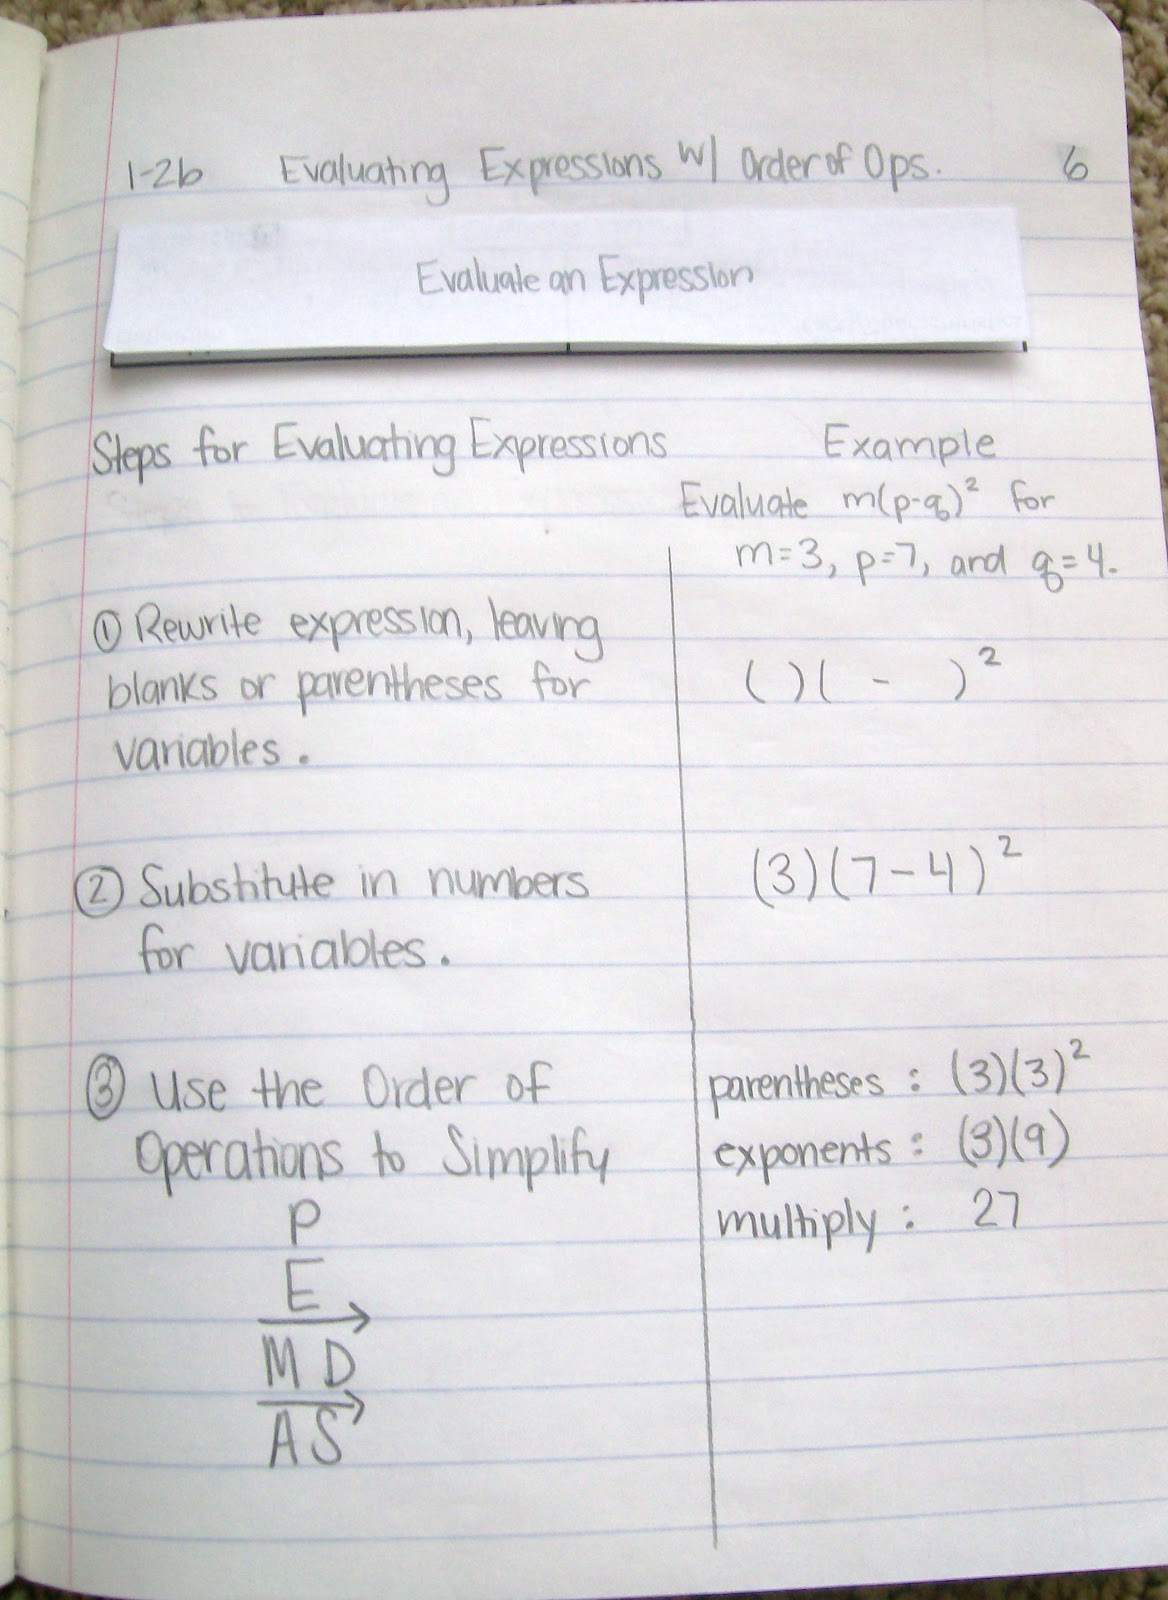 1-2b Evaluating Expressions w/ Order of Ops. 6
Evaluate an Expression
Steps for Evaluating Expressions
Example
Evaluate m(p-q)² for
m=3, p=7, and q=4.
① Rewrite expression, leaving
blanks or parentheses for
variables.
( )( - )²
② Substitute in numbers
for variables.
(3)(7-4)²
③ Use the Order of
Operations to Simplify
P
E
M D
A S
parentheses: (3)(3)²
exponents: (3)(9)
multiply: 27